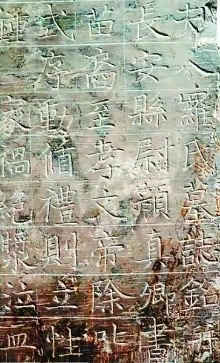 夫人羅氏墓誌銘并
長安縣尉顏真卿書
苗裔至孝文帝除叱
式序動循禮則立性
鍾家禍絕漿泣血